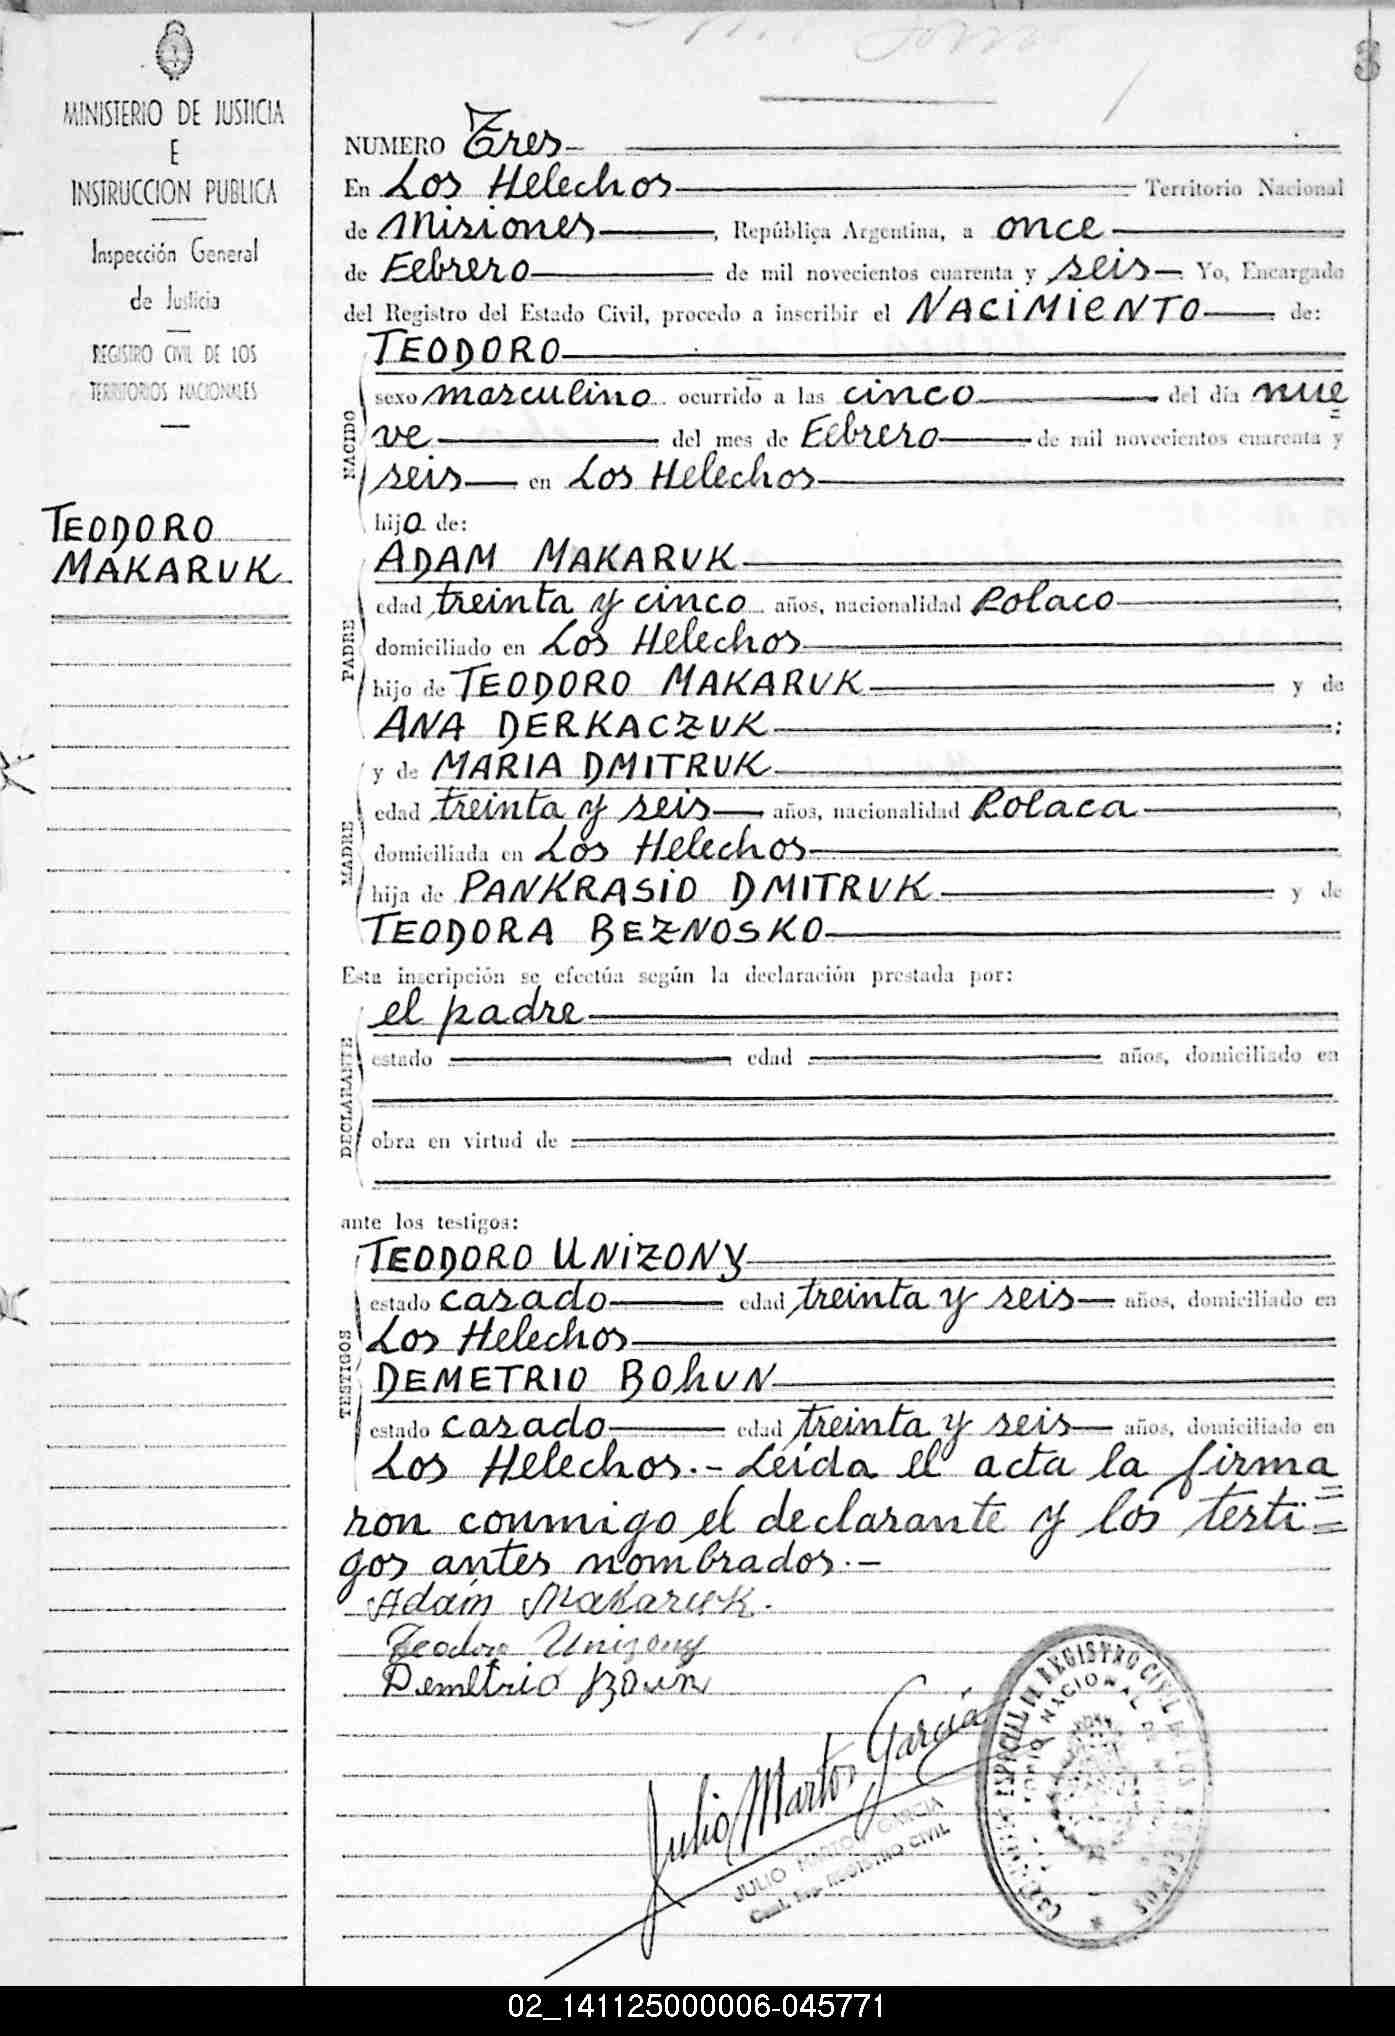 3
MINISTERIO DE JUSTICIA
E
INSTRUCCION PUBLICA
Inspección General
de Justicia
REGISTRO CIVIL DE LOS
TERRITORIOS NACIONALES
TEODORO
MAKARUK
NUMERO Tres
En Los Helechos Territorio Nacional
de Misiones, República Argentina, a once
de Febrero de mil novecientos cuarenta y seis Yo, Encargado
del Registro del Estado Civil, procedo a inscribir el NACIMIENTO de:
NACIDO
TEODORO
sexo masculino ocurrido a las cinco del día nue=
ve del mes de Febrero de mil novecientos cuarenta y
seis en Los Helechos
hijo de:
PADRE
ADAM MAKARUK
edad treinta y cinco años, nacionalidad Polaco,
domiciliado en Los Helechos
hijo de TEODORO MAKARUK y de
ANA DERKACZUK;
MADRE
y de MARIA DMITRUK
edad treinta y seis años, nacionalidad Polaca,
domiciliada en Los Helechos
hija de PANKRASIO DMITRUK y de
TEODORA BEZNOSKO
Esta inscripción se efectúa según la declaración prestada por:
DECLARANTE
el padre
estado edad años, domiciliado en
obra en virtud de
ante los testigos:
TESTIGOS
TEODORO UNIZONY
estado casado edad treinta y seis años, domiciliado en
Los Helechos
DEMETRIO BOhUN
estado casado edad treinta y seis años, domiciliado en
Los Helechos.- Leída el acta la firma=
ron conmigo el declarante y los testi=
gos antes nombrados.-
Adam Makaruk.
Teodoro Unizony
Demetrio Boun
Julio Martos García
JULIO MARTOS GARCIA
REGISTRO CIVIL
REGISTRO CIVIL DE LOS
NACIONAL DE
02_141125000006-045771